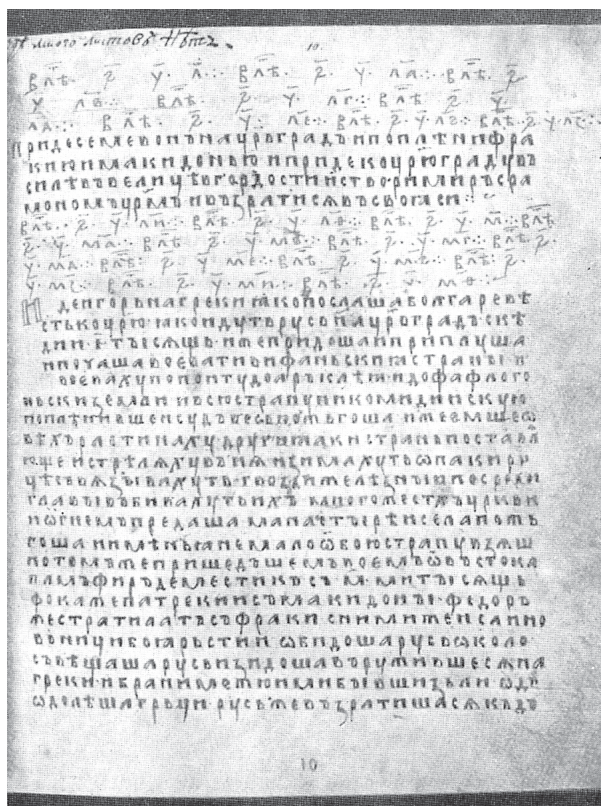 здѣ много листовъ нѣтъ.
10.
В лѣт. ҂ѕ. у. л҃. :· В лѣт. ҂ѕ. у. ла. :· В лѣт. ҂ѕ
у лв. :· В лѣт. ҂ѕ. у. лг. :· В лѣт ҂ѕ у
лд. :· В лѣт. ҂ѕ. у. ле. :· В лѣт ҂ѕ. у. лѕ. :· В лѣт ҂ѕ у лз. :·
Приде семевонъ на црьградъ и поплѣни фра
кию и макидонью и приде ко црюграду въ
силѣ въ велицѣ в гордости и створи миръ с ра
мономъ црмъ и възратися въ своꙗси :·
В лѣт. ҂ѕ. у. ли. :· В лѣт. ҂ѕ. у. лѳ. :· В лѣт ҂ѕ. у. м. :· В лѣт
҂ѕ. у ма. :· В лѣт ҂ѕ. у мв. :· В лѣт ҂ѕ. у. мг. :· В лѣт ҂ѕ.
у. мд. :· В лѣт ҂ѕ. у ме. :· В лѣт ҂ѕ. у. мѕ. :· В лѣт. ҂ѕ.
у. мз. :· В лѣт. ҂ѕ. у. ми. :· В лѣт. ҂ѕ. у. мѳ. :·
Иде игорь на греки ꙗко послаша болгаре вѣ
сть ко црю ꙗко идуть русь на црьградъ скѣ
дии .і. тысящь иже придоша и приплуша
и почаша воевати вифаньскиꙗ страны и
воеваху по понту до аръклѣꙗ и до фафлого
ньски земли и всю страну никомидийскую
поплѣнивше и судъ весь пожьгоша ихже емше ѡ
вѣхъ растинаху другиꙗ аки странь поставлѧ
юще и стрѣляху въ нѧ изимахуть ѡпаки ру
цѣ съвязывахуть гвозди желѣзныи посреди
главы въбивахуть ихъ много же ст҃хъ црквии
и ѡгнемъ предаша манастырѣ и села пожь
гоша и имѣньꙗ немало ѿ бою страну взяш
потомъ же пришедъшемъ воемъ ѿ въстока
панъфиръ деместикъ съ .м. ми тысящь
фока же патрекии съ макидоны федоръ
же стратилатъ съ фраки с ними же и сано
вници боꙗрьстии ѡбидоша русь ѡколо
съвѣщаша русь изидоша въружившеся на
греки и брани межю ими бывши зьли ѡдв
ѡдолѣша грьци русь же възратишася къ дъ
10